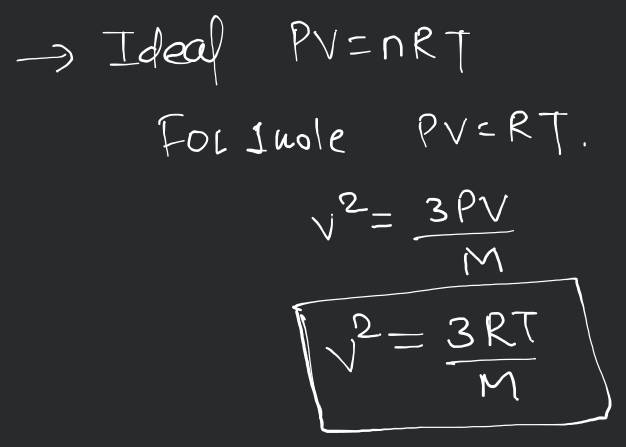 → Ideal PV=nRT
For 1mole PV=RT.
v²= 3PV/M
v²= 3RT/M